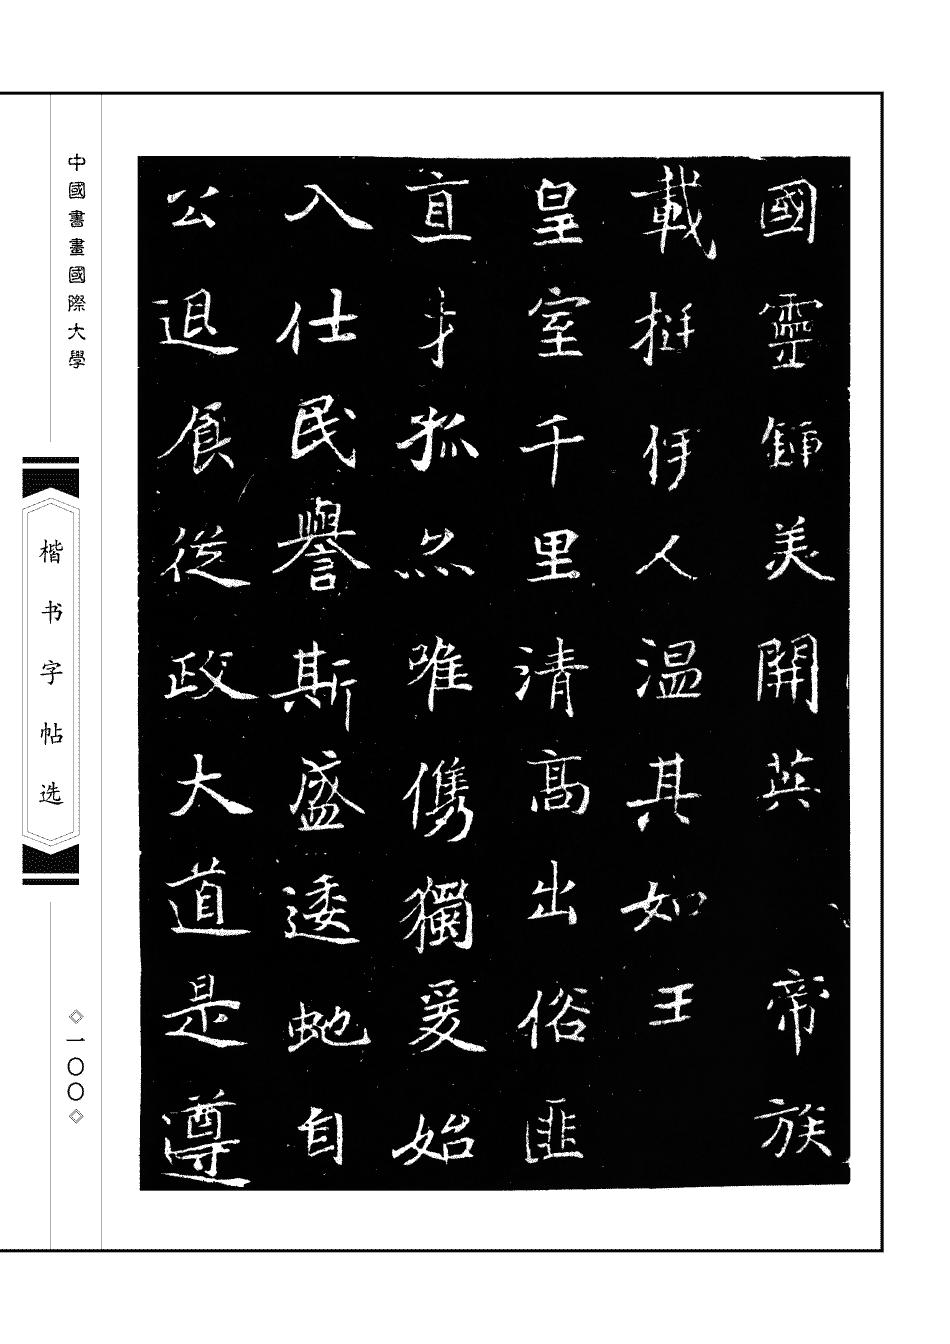 國靈錘美開英帝族
載挺伊人温其如王
皇室千里清高出俗匪
直身孤然唯儁獨爰始
入仕民譽斯盛逶虵自
公退食從政大道是遵
中國書畫國際大學
楷书字帖选
一〇〇